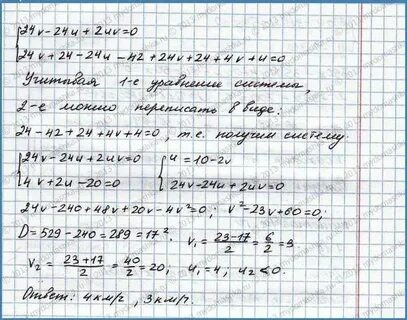 24v-24u+2uv=0
24v+24-24u-42+24v+24+4v+u=0
Учитывая 1-е уравнение системы,
2-е можно переписать в виде:
24-42+24+4v+4=0, т.е. получим систему
24v-24u+2uv=0 u=10-2v
4v+2u-20=0 24v-24u+2uv=0
24v-240+48v+20v-4v²=0; v²-23v+60=0;
D=529-240=289=17². v₁=23-17/2=6/2=3
v₂=23+17/2=40/2=20, u₁=4, u₂<0.
Ответ: 4км/г, 3км/г.